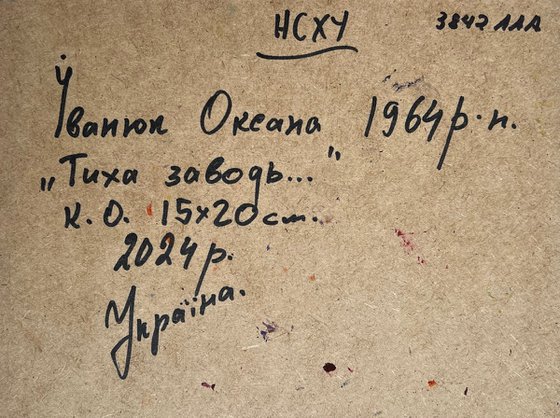 НСХУ
3847 ЛЛА
Іванюк Оксана 1964 р.н.
„Тиха заводь..."
к. о. 15х20 см.
2024 р.
Україна.